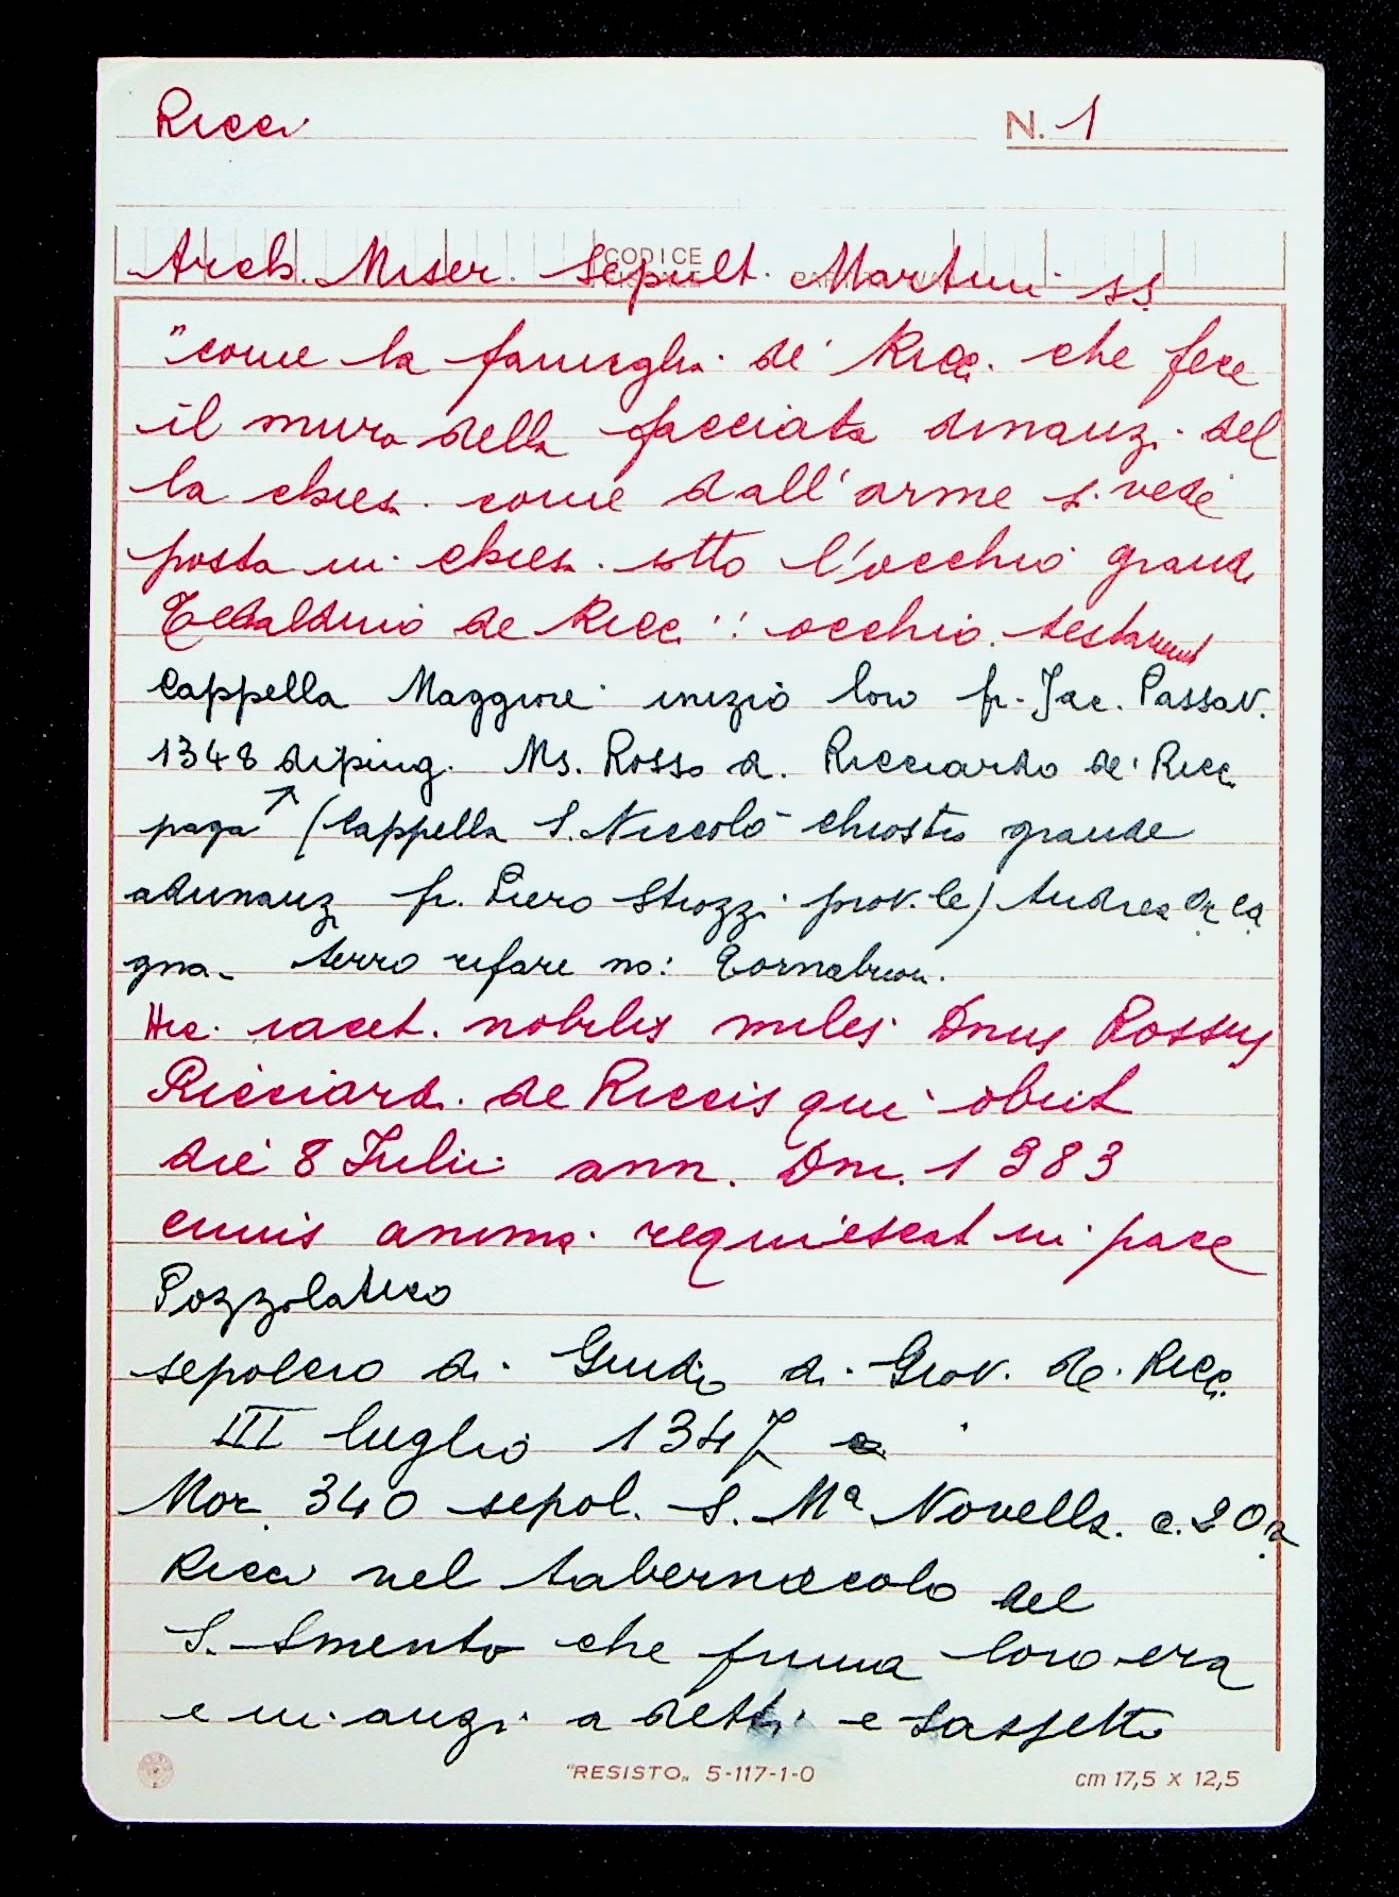 Ricci
N. 1
CODICE
Arch. Miser. Sepult. Martini ss
"come la famiglia de' Ricci che fece
il muro della facciata dinanzi del
la chiesa come dall'arme si vede
posta in chiesa sotto l'occhio grande
Tebalduio de Ricci": occhio. testament
Cappella Maggiore inizio loro fr. Jac. Passav.
1348 diping. Ms. Rosso di Ricciardo de' Ricci
paga ↗ (Cappella S. Niccolò chiostro grande
adunanz fr. Piero Strozzi prov.le) Andrea Orca
gna - terro rifare no: Tornabuon.
Hic iacet nobilis miles Dnus Rossus
Ricciard. de Riccis qui obiit
die 8 Iulii ann. Dni. 1383
cuius anima requiescat in pace
Pozzolatico
sepolcro di Guido di Giov. de Ricci
III luglio 1347
Mor. 340 sepol. S. Mª Novella c. 20a
Ricci nel tabernacolo del
S. Smento che prima loro era
e innanzi a detti e Sassetto
"RESISTO„ 5-117-1-0
cm 17,5 x 12,5